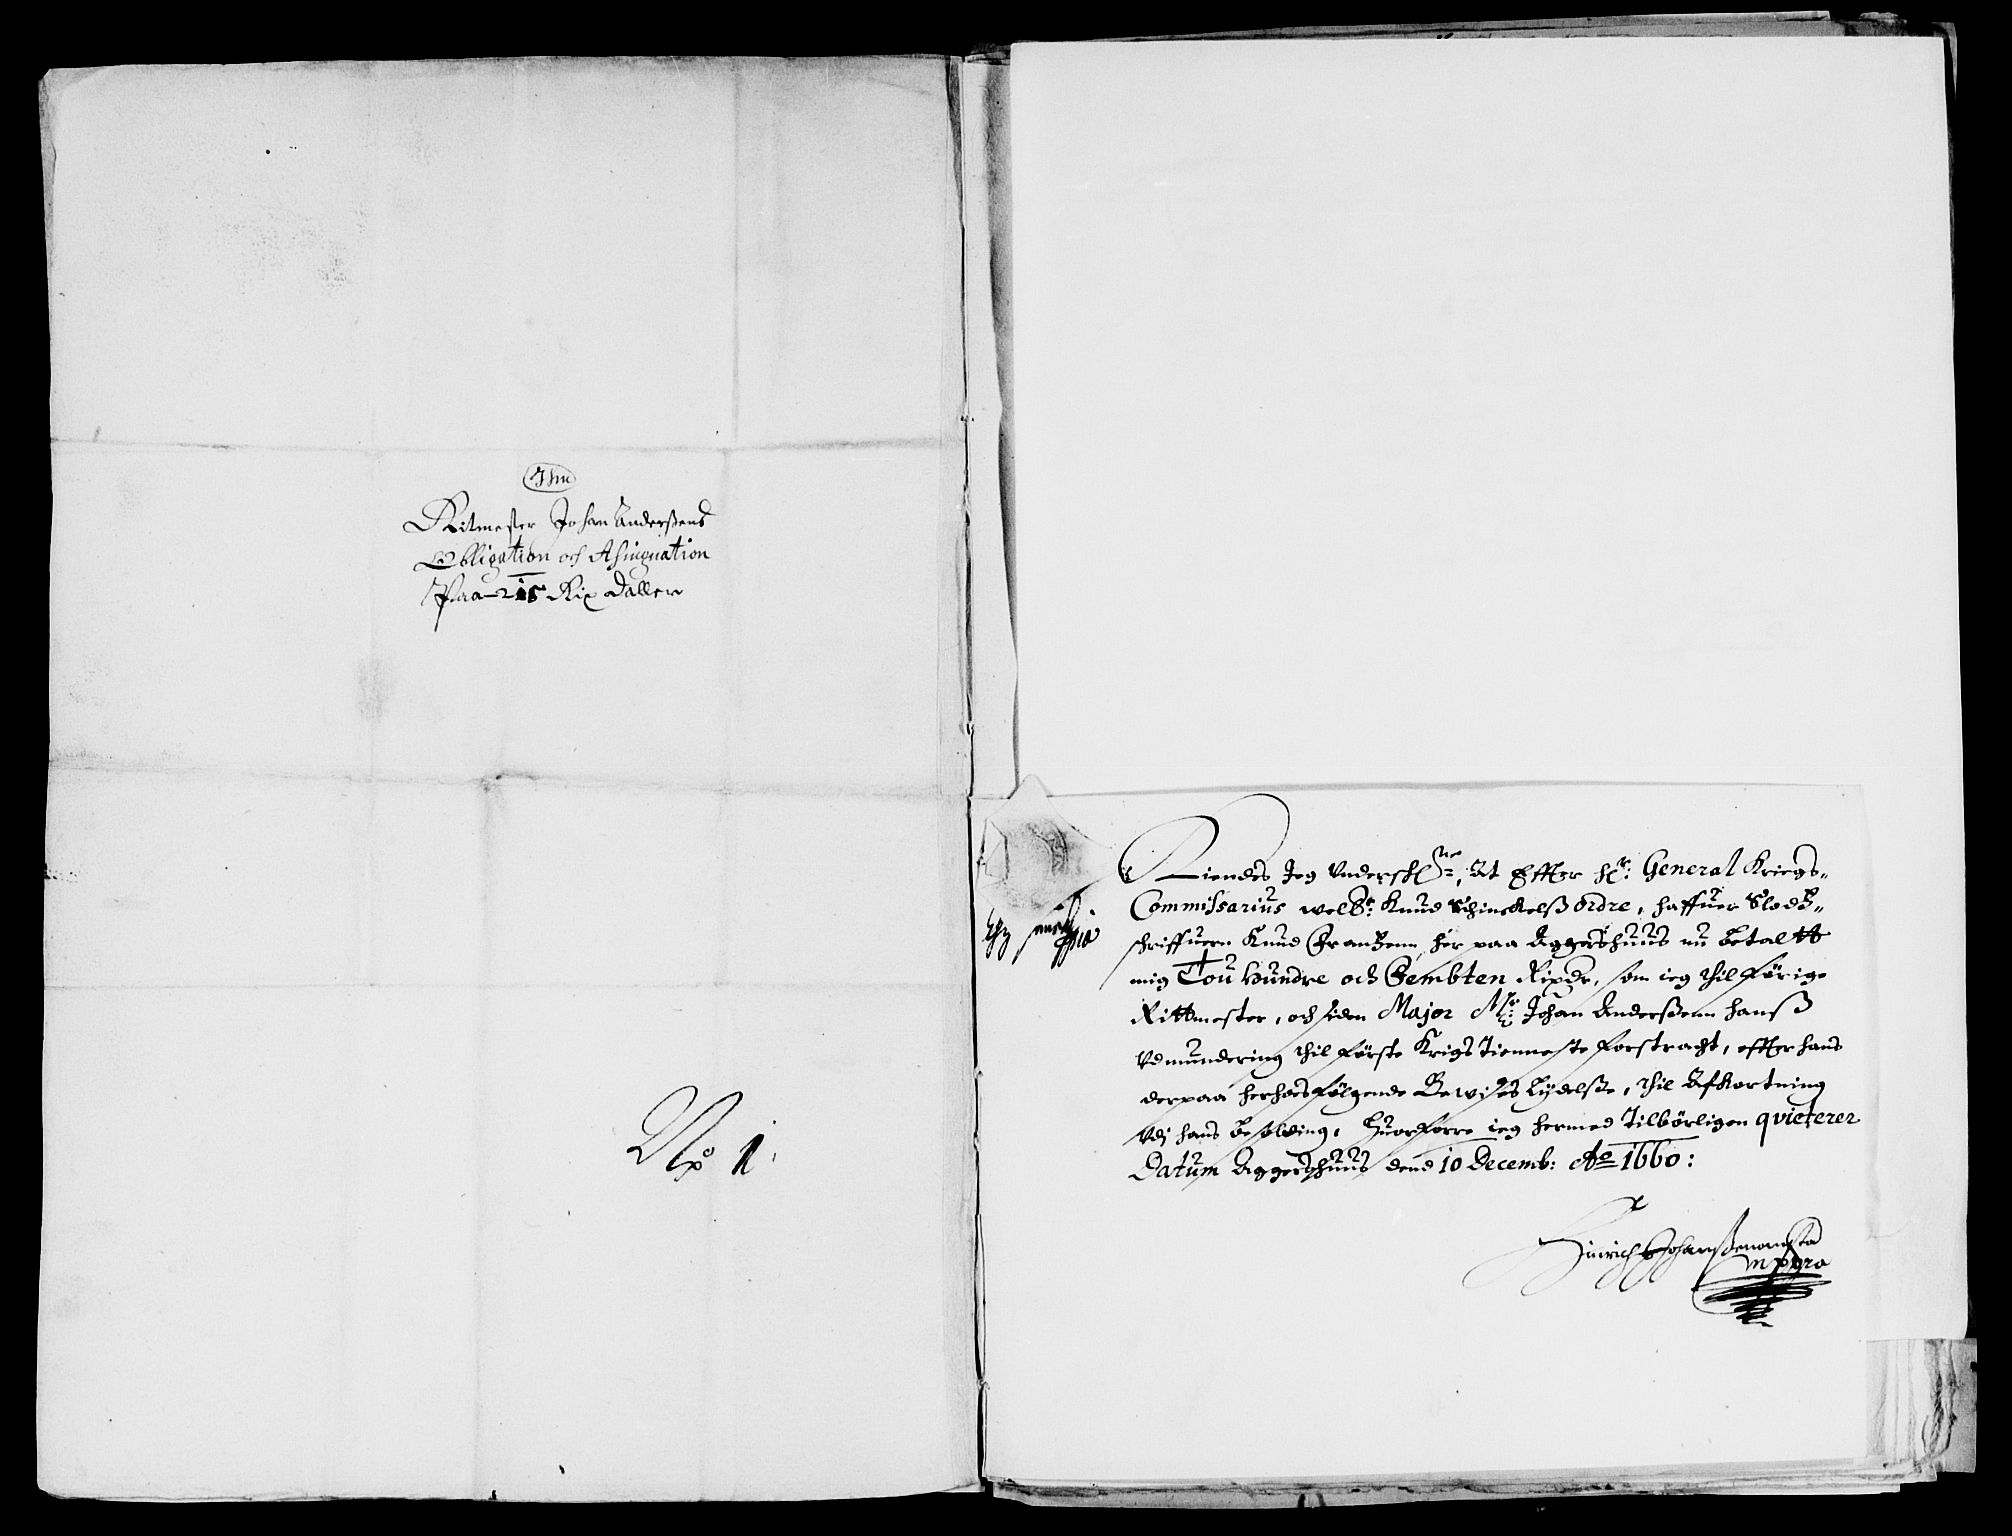 Ritmester Johan Anderßens
Obligation och Asingnation
Paa 215 Rix Daller
No 1.
Kiendes Jeg Underschne, At Effter Hr: General Kriegs-
Commissarius welb: Knud Schinckelß Ordre, haffuer Slodz-
schriffuern Knud Franzenn her paa Aggershuus nu betaltt
mig Tou Hundre och Fembten Rixdr, som ieg thil förige
Rittmester, och siden Major Mr: Johan Anderßenn hanß
Udmundering thil förste Krigs Tienneste forstracht, effter hans
derpaa herhoesfölgende Bewises Lydelße, thil Afkortning
Udj hans besolding, Huorforre ieg hermed Tilbörligen qvieterer
Datum Aggershuus dend 10 Decemb: Ao 1660:
Hinrich Johanßen
mppra